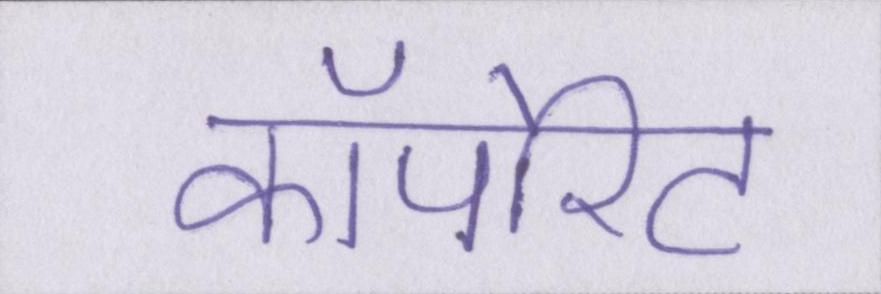 कॉपोरेट